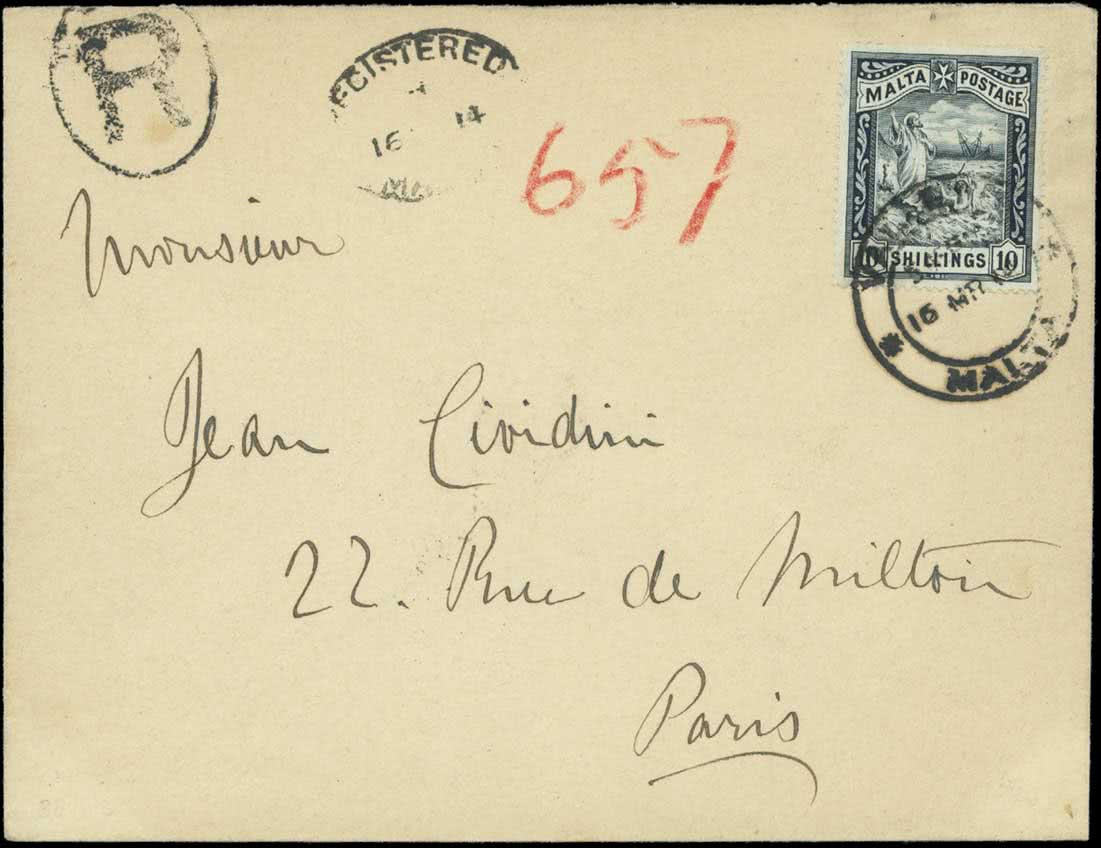 R
REGISTERED
16 14
657
MALTA POSTAGE
10 SHILLINGS 10
16 MR 14
MALTA
Monsieur
Jean Cividini
22. Rue de Milton
Paris